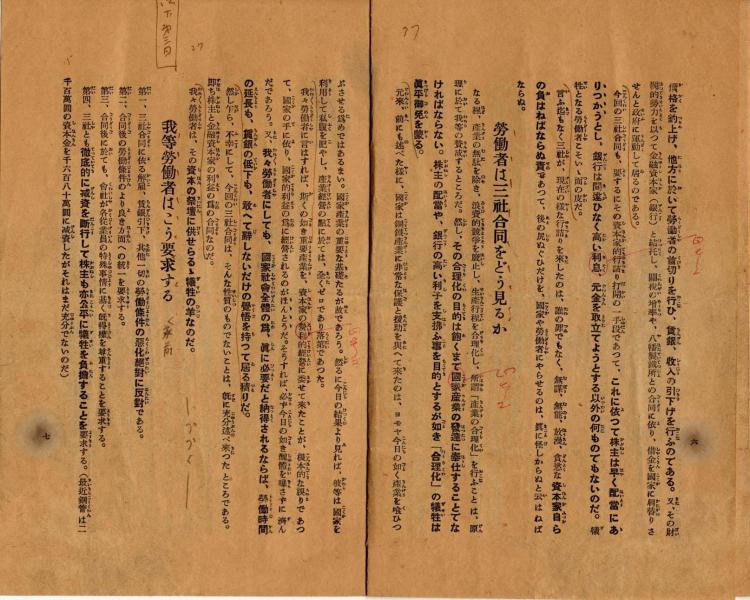 價格を釣上げ、他方に於いて勞働者の首切りを行ひ、賃銀、收入の引下げを行ふのである。又、その財
閥的勢力を以つて金融資本家（銀行）と結托し、關税の増率や、八幡製鐵所との合同に依り、借金を國家に肩替りさ
せんと政府に運動して居るのである。
今回の三社合同も、要するにその資本家的行詰り打開の一手段であつて、これに依つて株主は早く配當にあ
りつかうとし、銀行は間違ひなく高い利息、元金を取立てようとする以外の何ものでもないのだ。犧
牲となる勞働者こそいゝ面の皮だ。
言ふ迄もなく三社が、現在の樣な行詰りを來したのは、誰の罪でもなく、無謀、無智、放漫、貪慾な資本家自ら
の負はねばならぬ責であつて、後の尻ぬぐひだけを、國家や勞働者にやらせるのは、眞に怪しからぬと云はねば
ならぬ。
勞働者は三社合同をどう見るか
なる程、產業の無駄を除き、浪費的競爭を廢止し、生產行程を合理化し、所謂「產業の合理化」を行ふことは、原
理に於て我等の贊成するところだ。都し、その合理化の目的は飽くまで國家產業の發達に奉仕することでな
ければならない。株主の配當や、銀行の高い利子を支拂ふ事を目的とするが如き「合理化」の犧牲は
眞平御免を蒙る。
元來、前にも述べた樣に、國家は鋼鐵產業に非常な保護と援助を與へて來たのは、ヨモヤ今日の如く產業を喰ひつ
六
ぶさせる爲めではあるまい。國家產業の重要な基礎たるが故であらう。然るに今日の結果より見れば、彼等は國家を
利用して私腹を肥やし、產業經營の點に於ては、悉くゼロであり落第であつた。
我々勞働者に言はすれば、斯くの如き重要產業を、資本家の營利的經營に委せて來たことが、根本的な誤りであつ
て、國家の手に依り、國家的利益の爲に經營されるのがほんとうだ。そうすれば、必ず今日の如き醜體を曝さずに濟ん
だであろう。又、我々勞働者にしても、國家社會全體の爲、眞に必要だと納得されるならば、勞働時間
の延長も、賃銀の低下も、敢へて辭しないだけの覺悟を持つて居る積りだ。
然し乍ら、不幸にして、今度の三社合同は、そんな性質のものでないことは、既に充分述べ來つたところである。
即ち株主と金融資本家の利益の爲の合同なのだ。
我々勞働者は、その資本の祭壇に供せらるゝ犧牲の羊なのだ。
我等勞働者は、こう要求する
第一、三社合同に依る解雇、賃銀引下、其他一切の勞働條件の惡化絕對に反對である。
第二、合同後の勞働條件のより良き方面への統一を要求する。
第三、合同後に於ても、會社が各從業員の特殊事情に基く既得權を尊重することを要求する。
第四、三社とも徹底的に減資を斷行して株主も亦公平に犧牲を負擔することを要求する。（最近鋼管は二
千百萬圓の資本金を千六百八十萬圓に減資したがそれはまだ充分でないのだ）
七